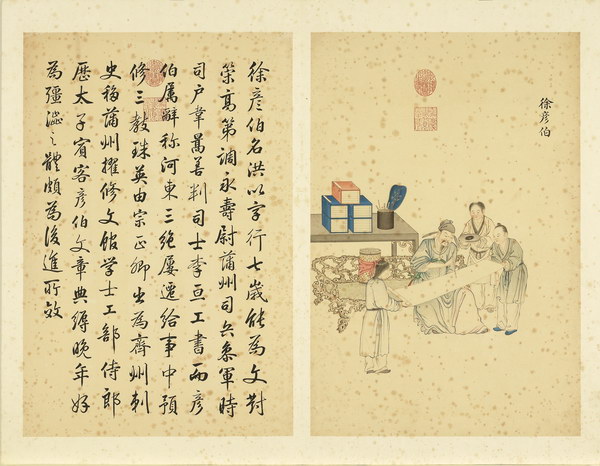 徐彦伯
徐彦伯名洪以字行七歲能為文對
策高第調永壽尉蒲州司兵參軍時
司户韋暠善判司士李亘工書而彦
伯属辭称河東三絶屢遷給事中預
修三教珠英由宗正卿出為齊州刺
史移蒲州擢修文館学士工部侍郎
歷太子賓客彦伯文章典縟晚年好
為彊澁之體頗為後進所效